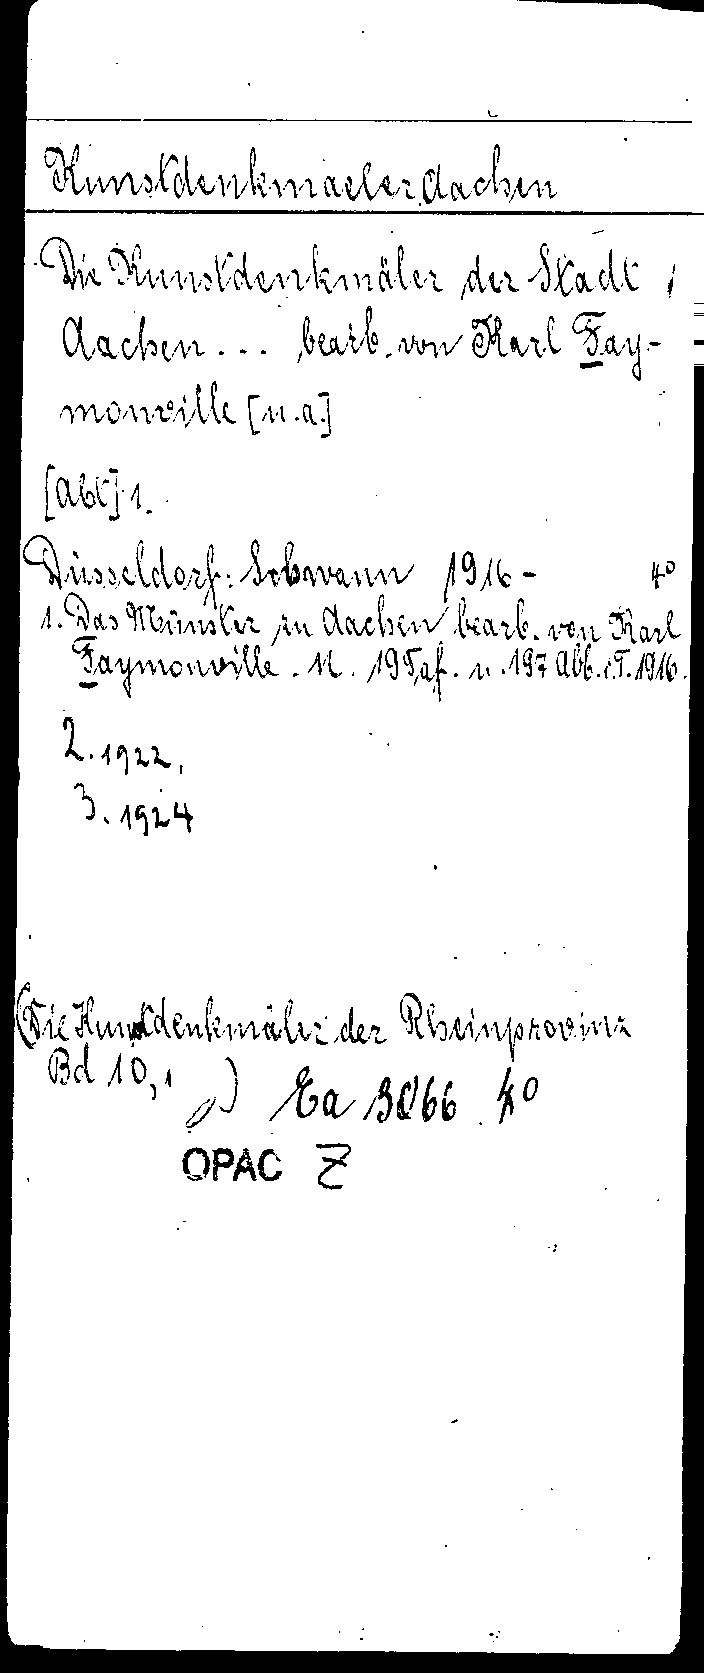 Kunstdenkmaeler Aachen
Die Kunstdenkmäler der Stadt
Aachen... bearb. von Karl Fay-
monville [u.a.]
[Abt.] 1.
Düsseldorf: Schwann 1916- 4°
1. Das Münster zu Aachen bearb. von Karl
Faymonville. M. 19 Taf. u. 197 Abb. i.T. 1916.
2. 1922.
3. 1924
(Die Kunstdenkmäler der Rheinprovinz
Bd 10,1
) Ea 3866 4°
OPAC Z